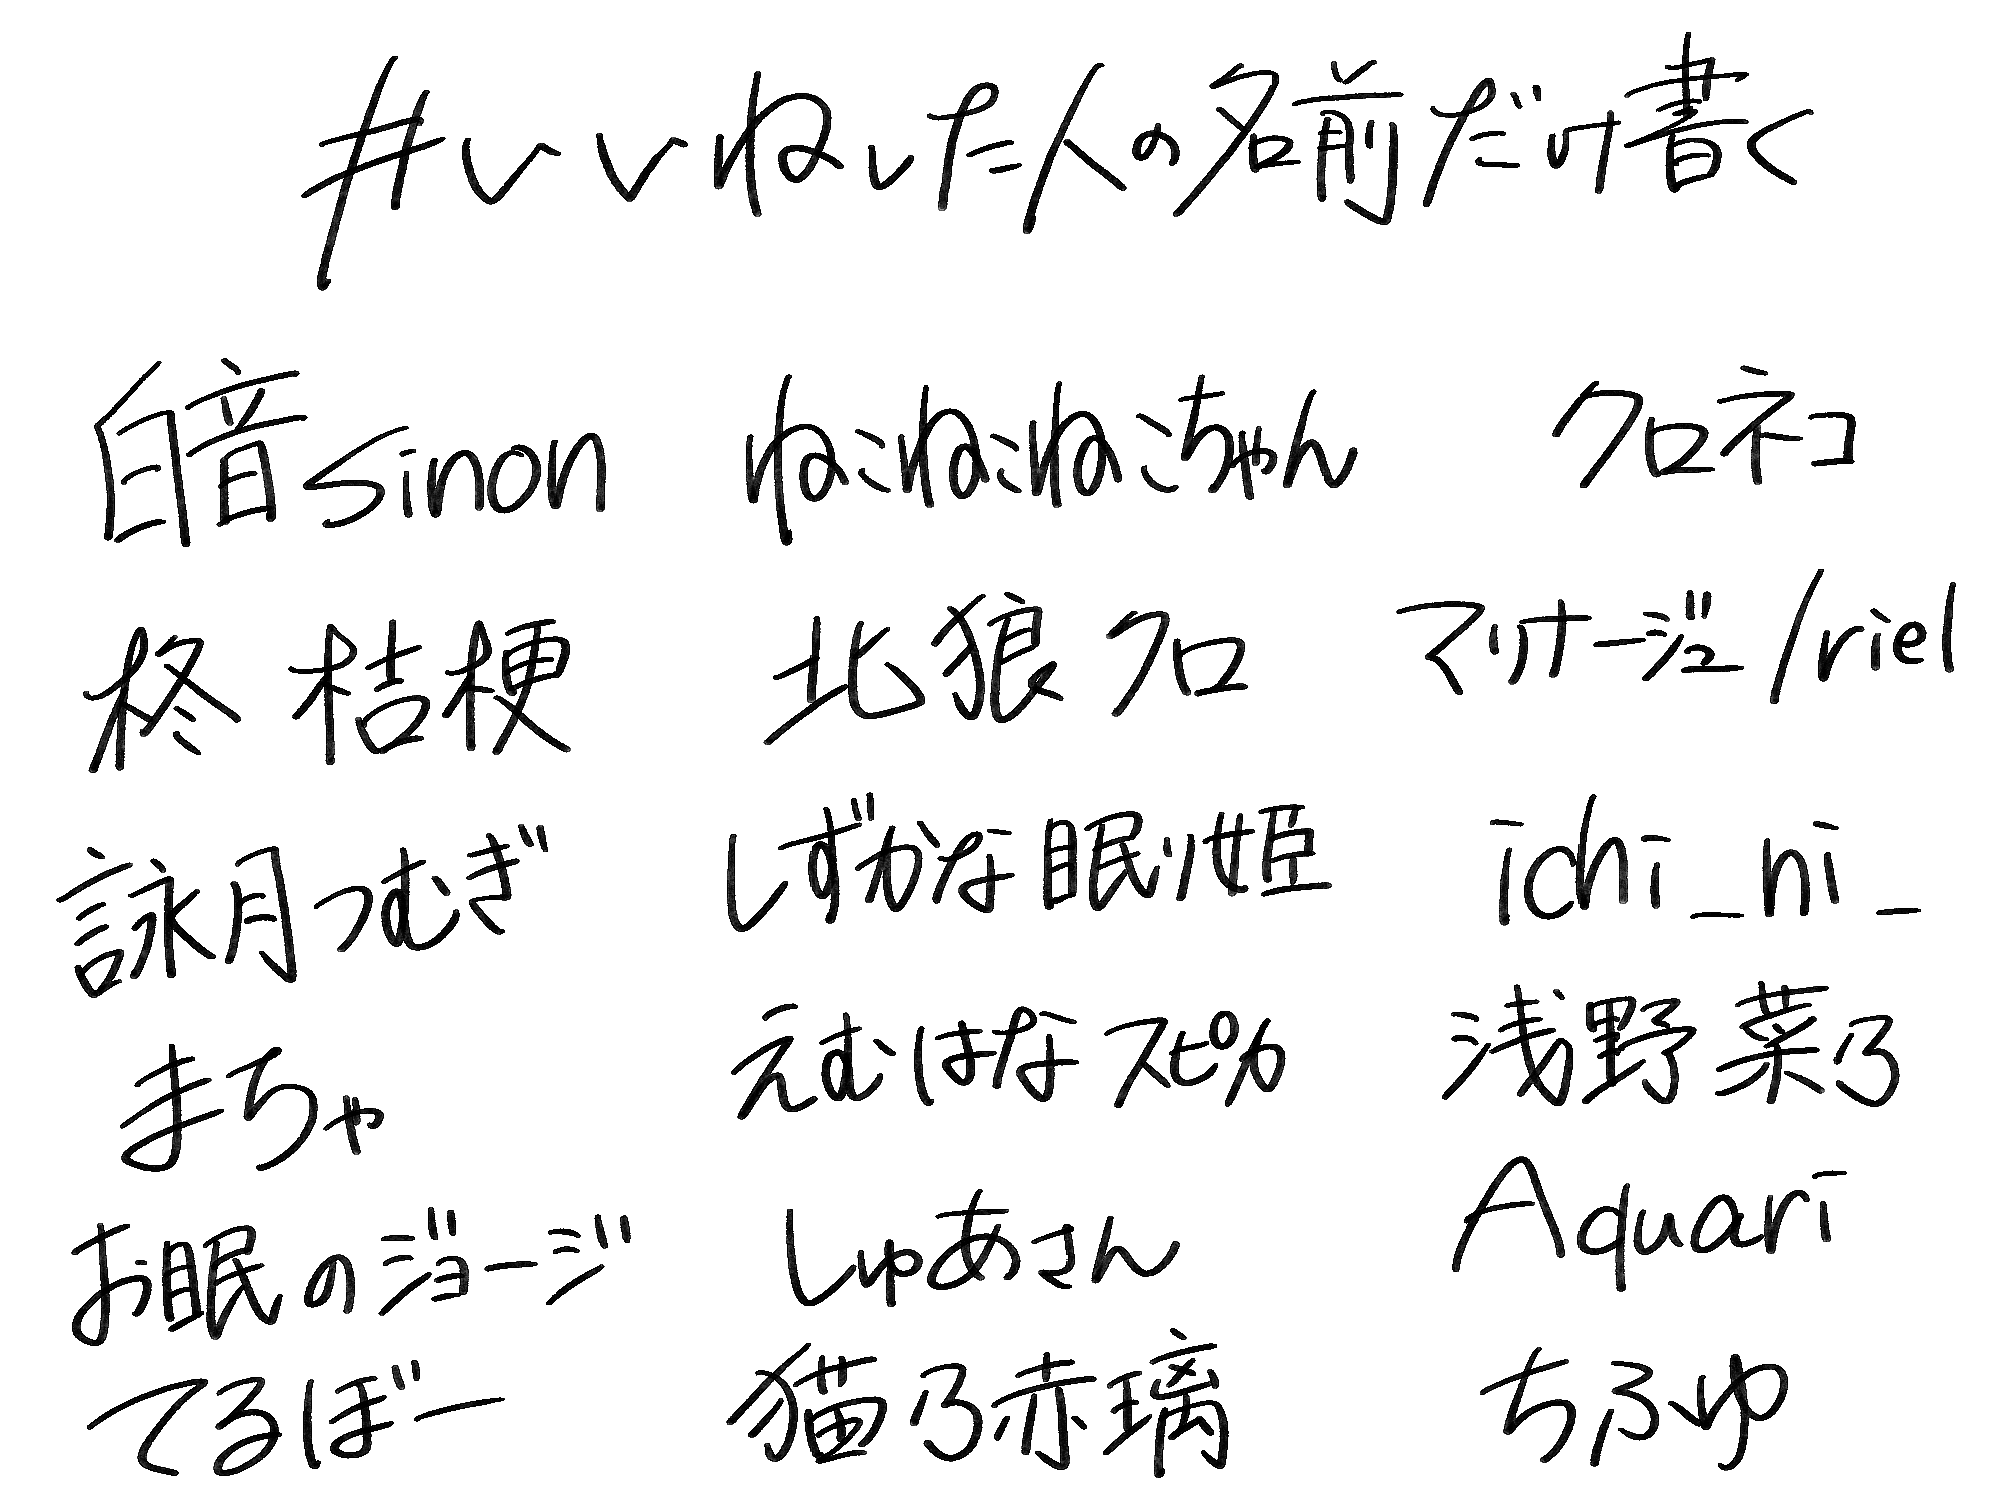 #いいねした人の名前だけ書く
白音sinon ねこねこねこちゃん クロネコ
柊 桔梗 北狼クロ マリナージュ/riel
詠月つむぎ しずかな眠り姫 ichi_ni_
まちゃ えむはなスピカ 浅野菜乃
お眠のジョージ しゅあさん Aquari
てるぼー 猫乃赤璃 ちふゆ